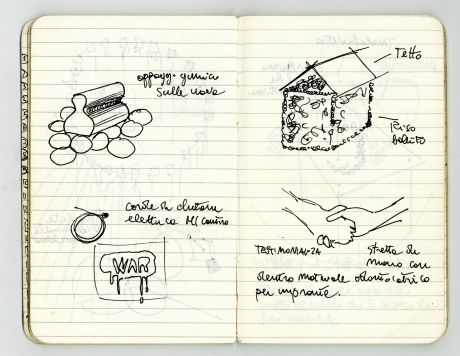 sulle uova
corde di chitarra
elettrica contro
WAR
Tetto
Riso
bollito
TESTIMONIANZA stretta di
mano con
dentro materiale odontoiatrico
per impronte.